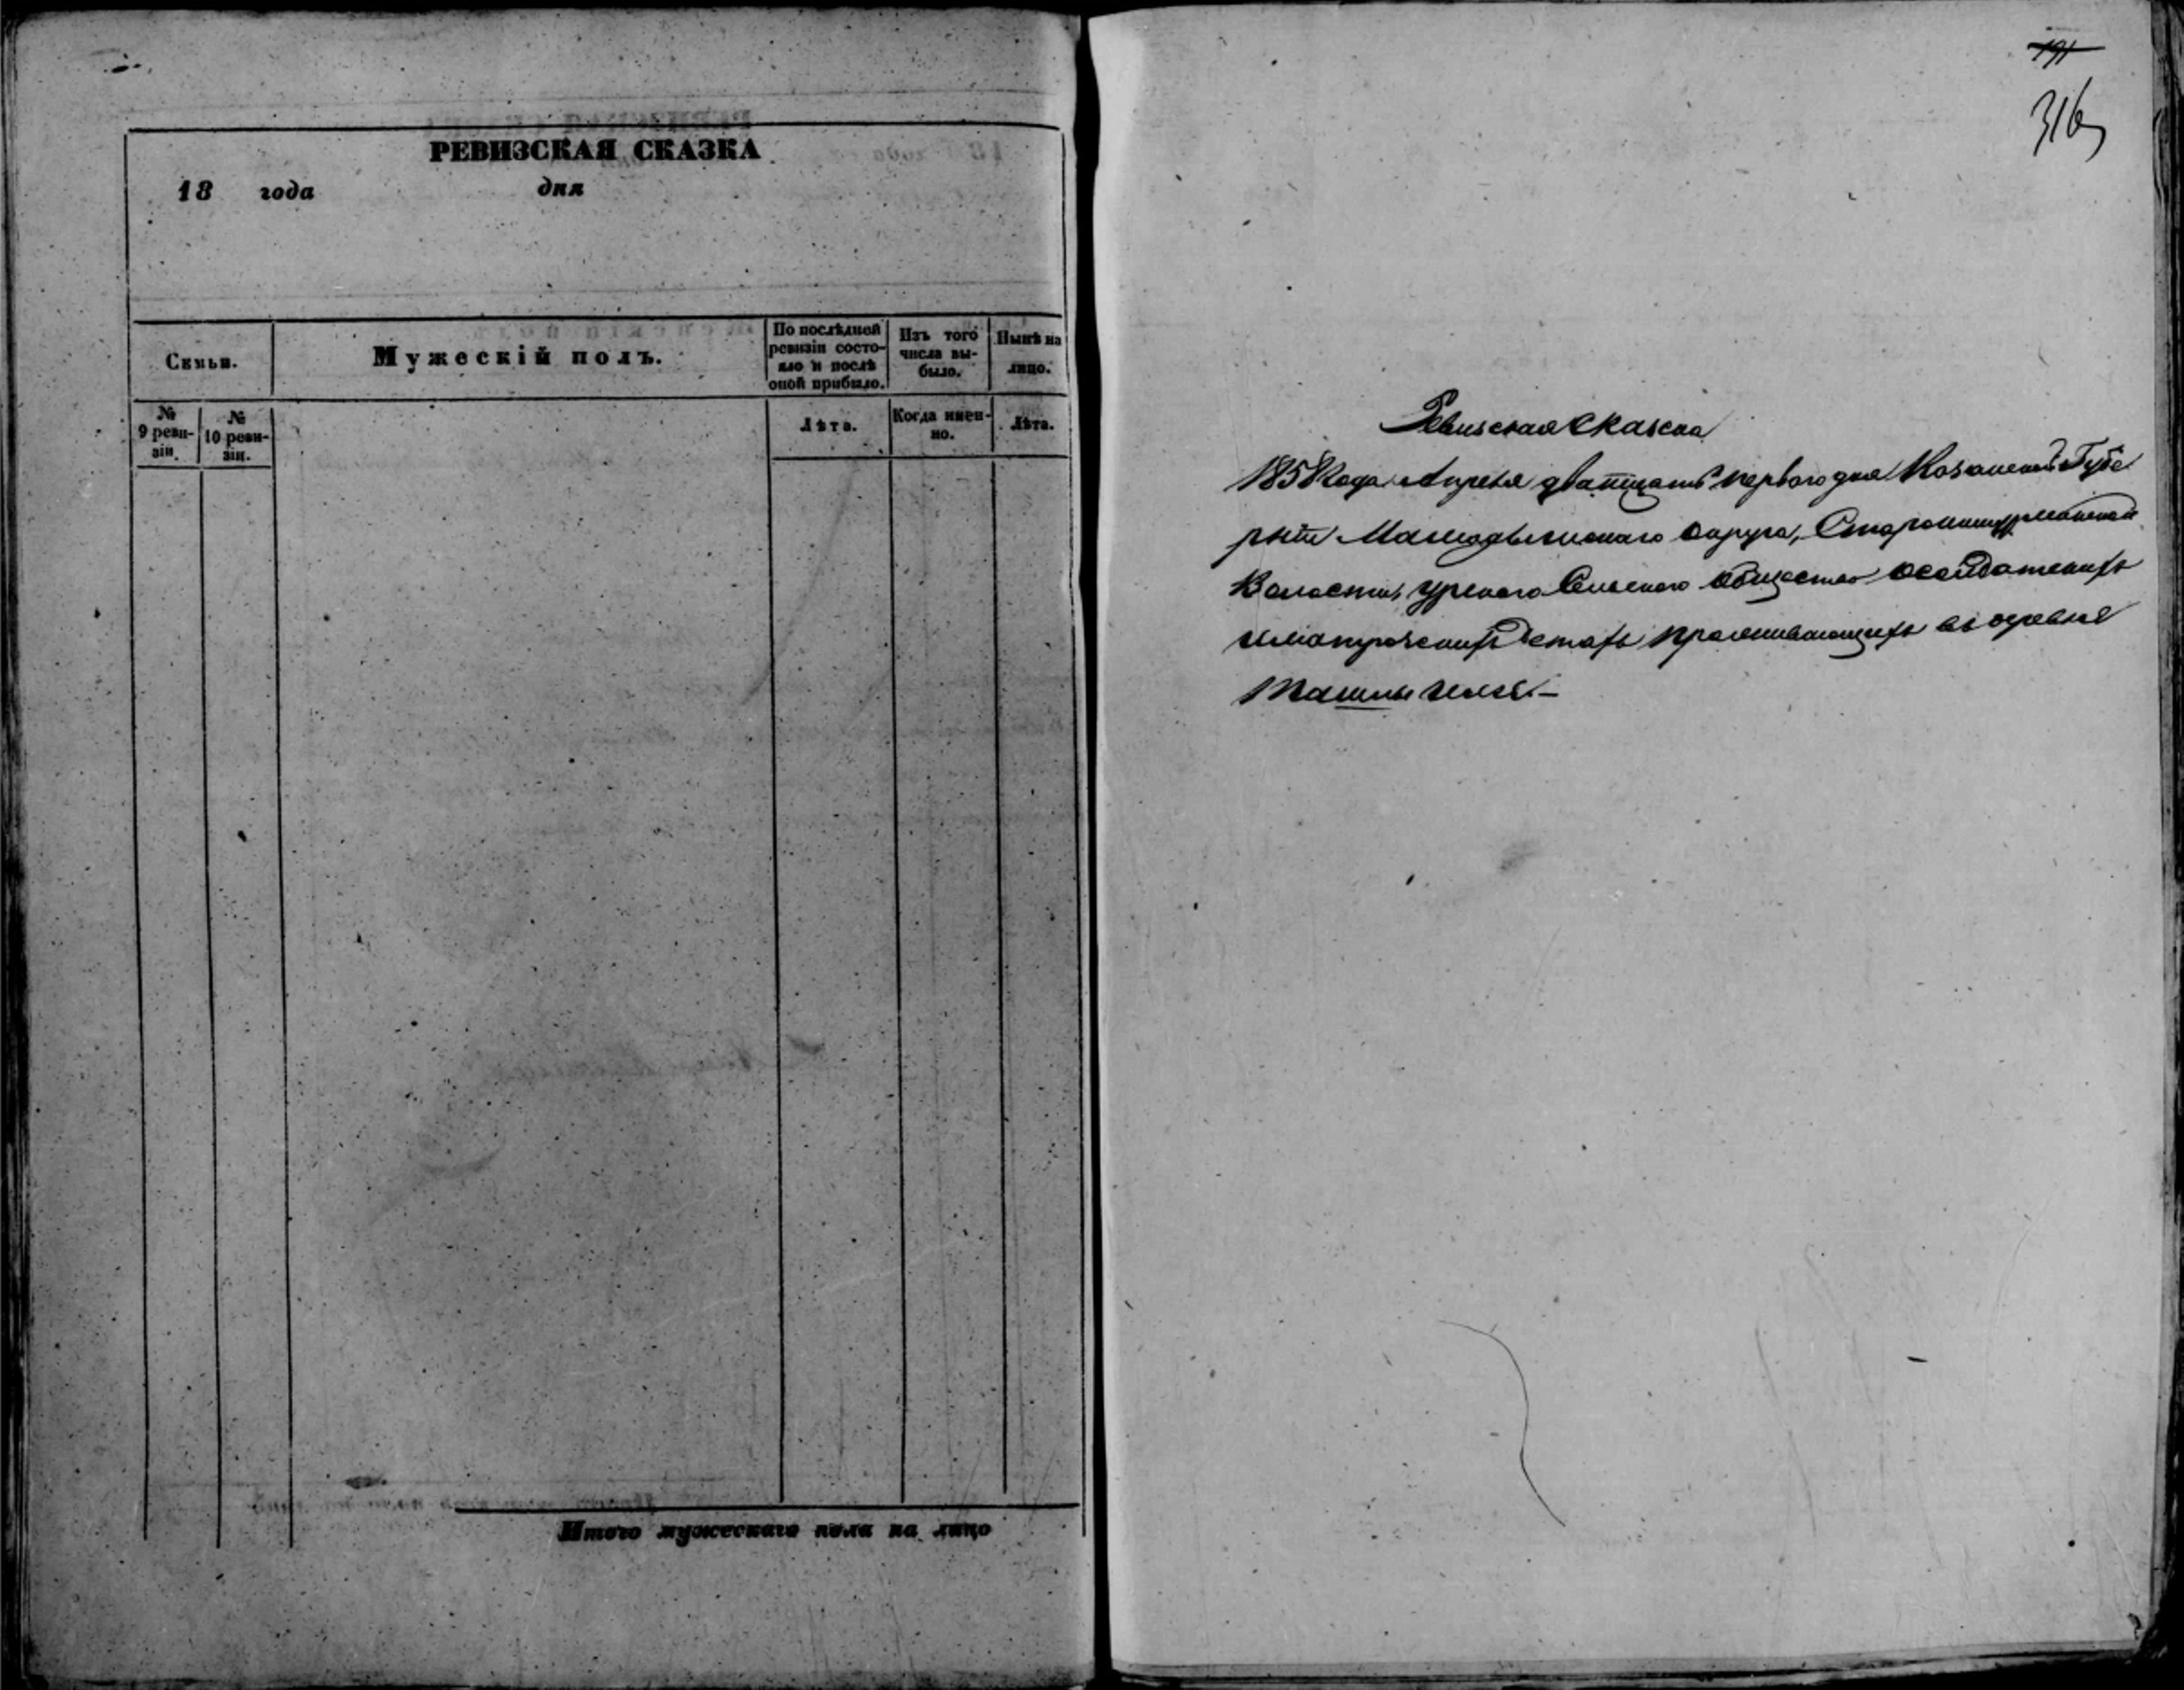 РЕВИЗСКАЯ СКАЗКА
18 года дня
Семьи.
Мужескій полъ.
По послѣдней ревизіи состояло и послѣ оной прибыло.
Изъ того числа выбыло.
Нынѣ на лицо.
№ 9 ревизіи.
№ 10 ревизіи.
Лѣта.
Когда именно.
Лѣта.
Итого мужескаго пола на лицо
191
316
Ревизская Сказка
1858 года Апреля дватцать первого дня Казанской Губе
рніи Мамадышскаго округа,
Волости, Сельскаго общества о
проживающихъ въ деревне